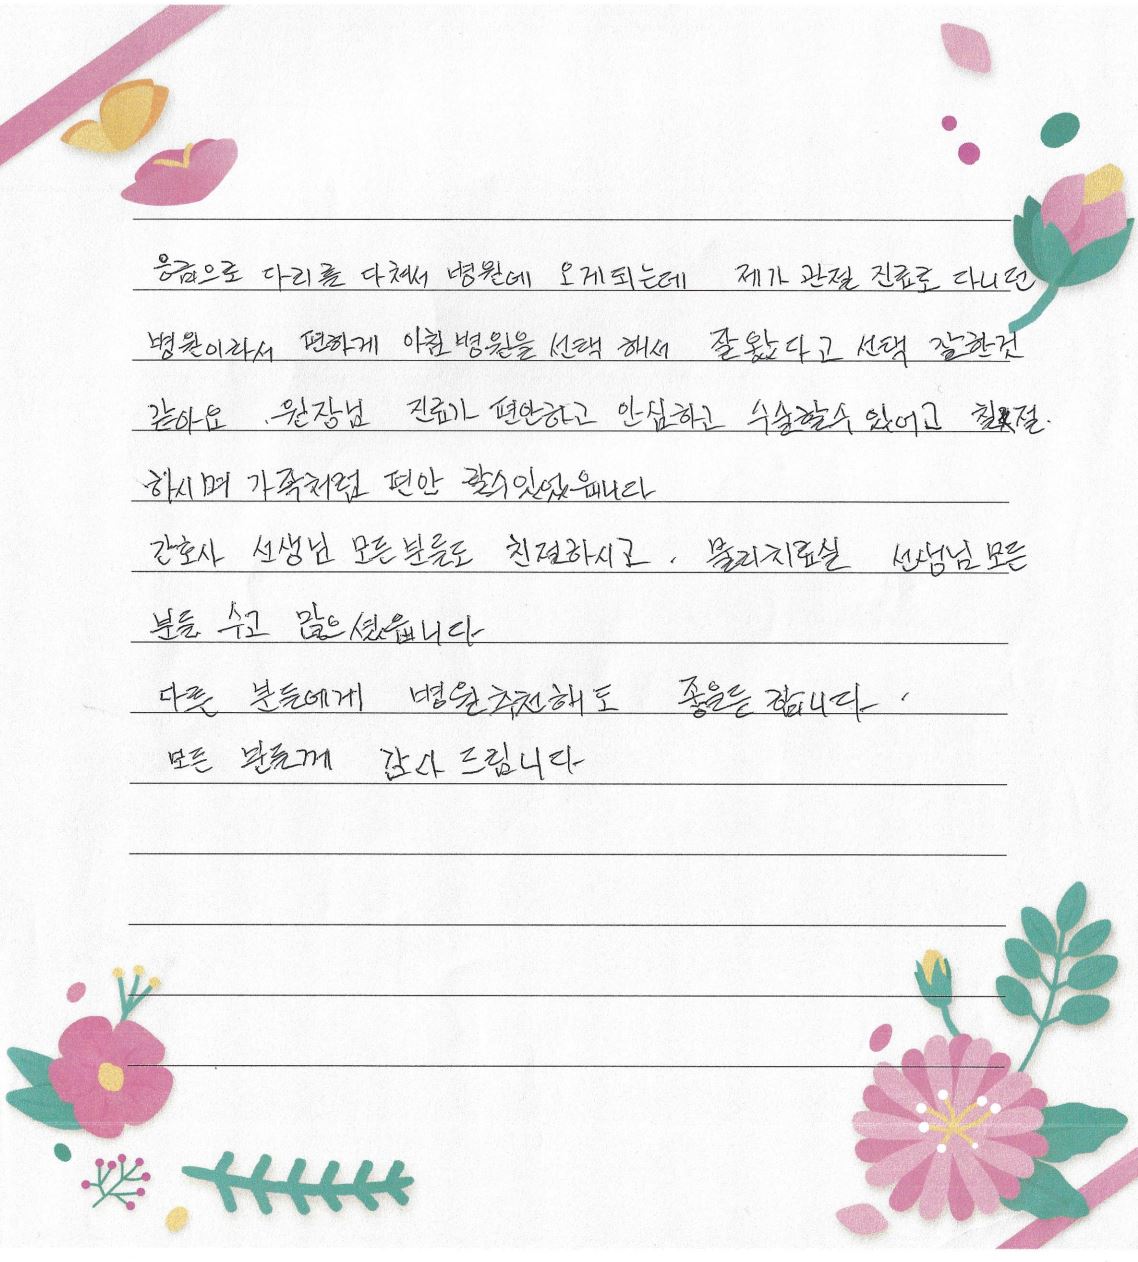 응급으로 다리를 다쳐서 병원에 오게되는데 제가 관절 진료로 다니던
병원이라서 편하게 아침병원을 선택 해서 잘왔다고 선택 잘한것
같아요. 원장님 진료가 편안하고 안심하고 수술할수 있어고 친절.
하시며 가족처럼 편안 할수있었읍니다
간호사 선생님 모든분들도 친절하시고. 물리치료실 선생님 모든
분들 수고 많으셨읍니다
다른 분들에게 병원추천해도 좋을듯 합니다.
모든 분들께 감사 드립니다